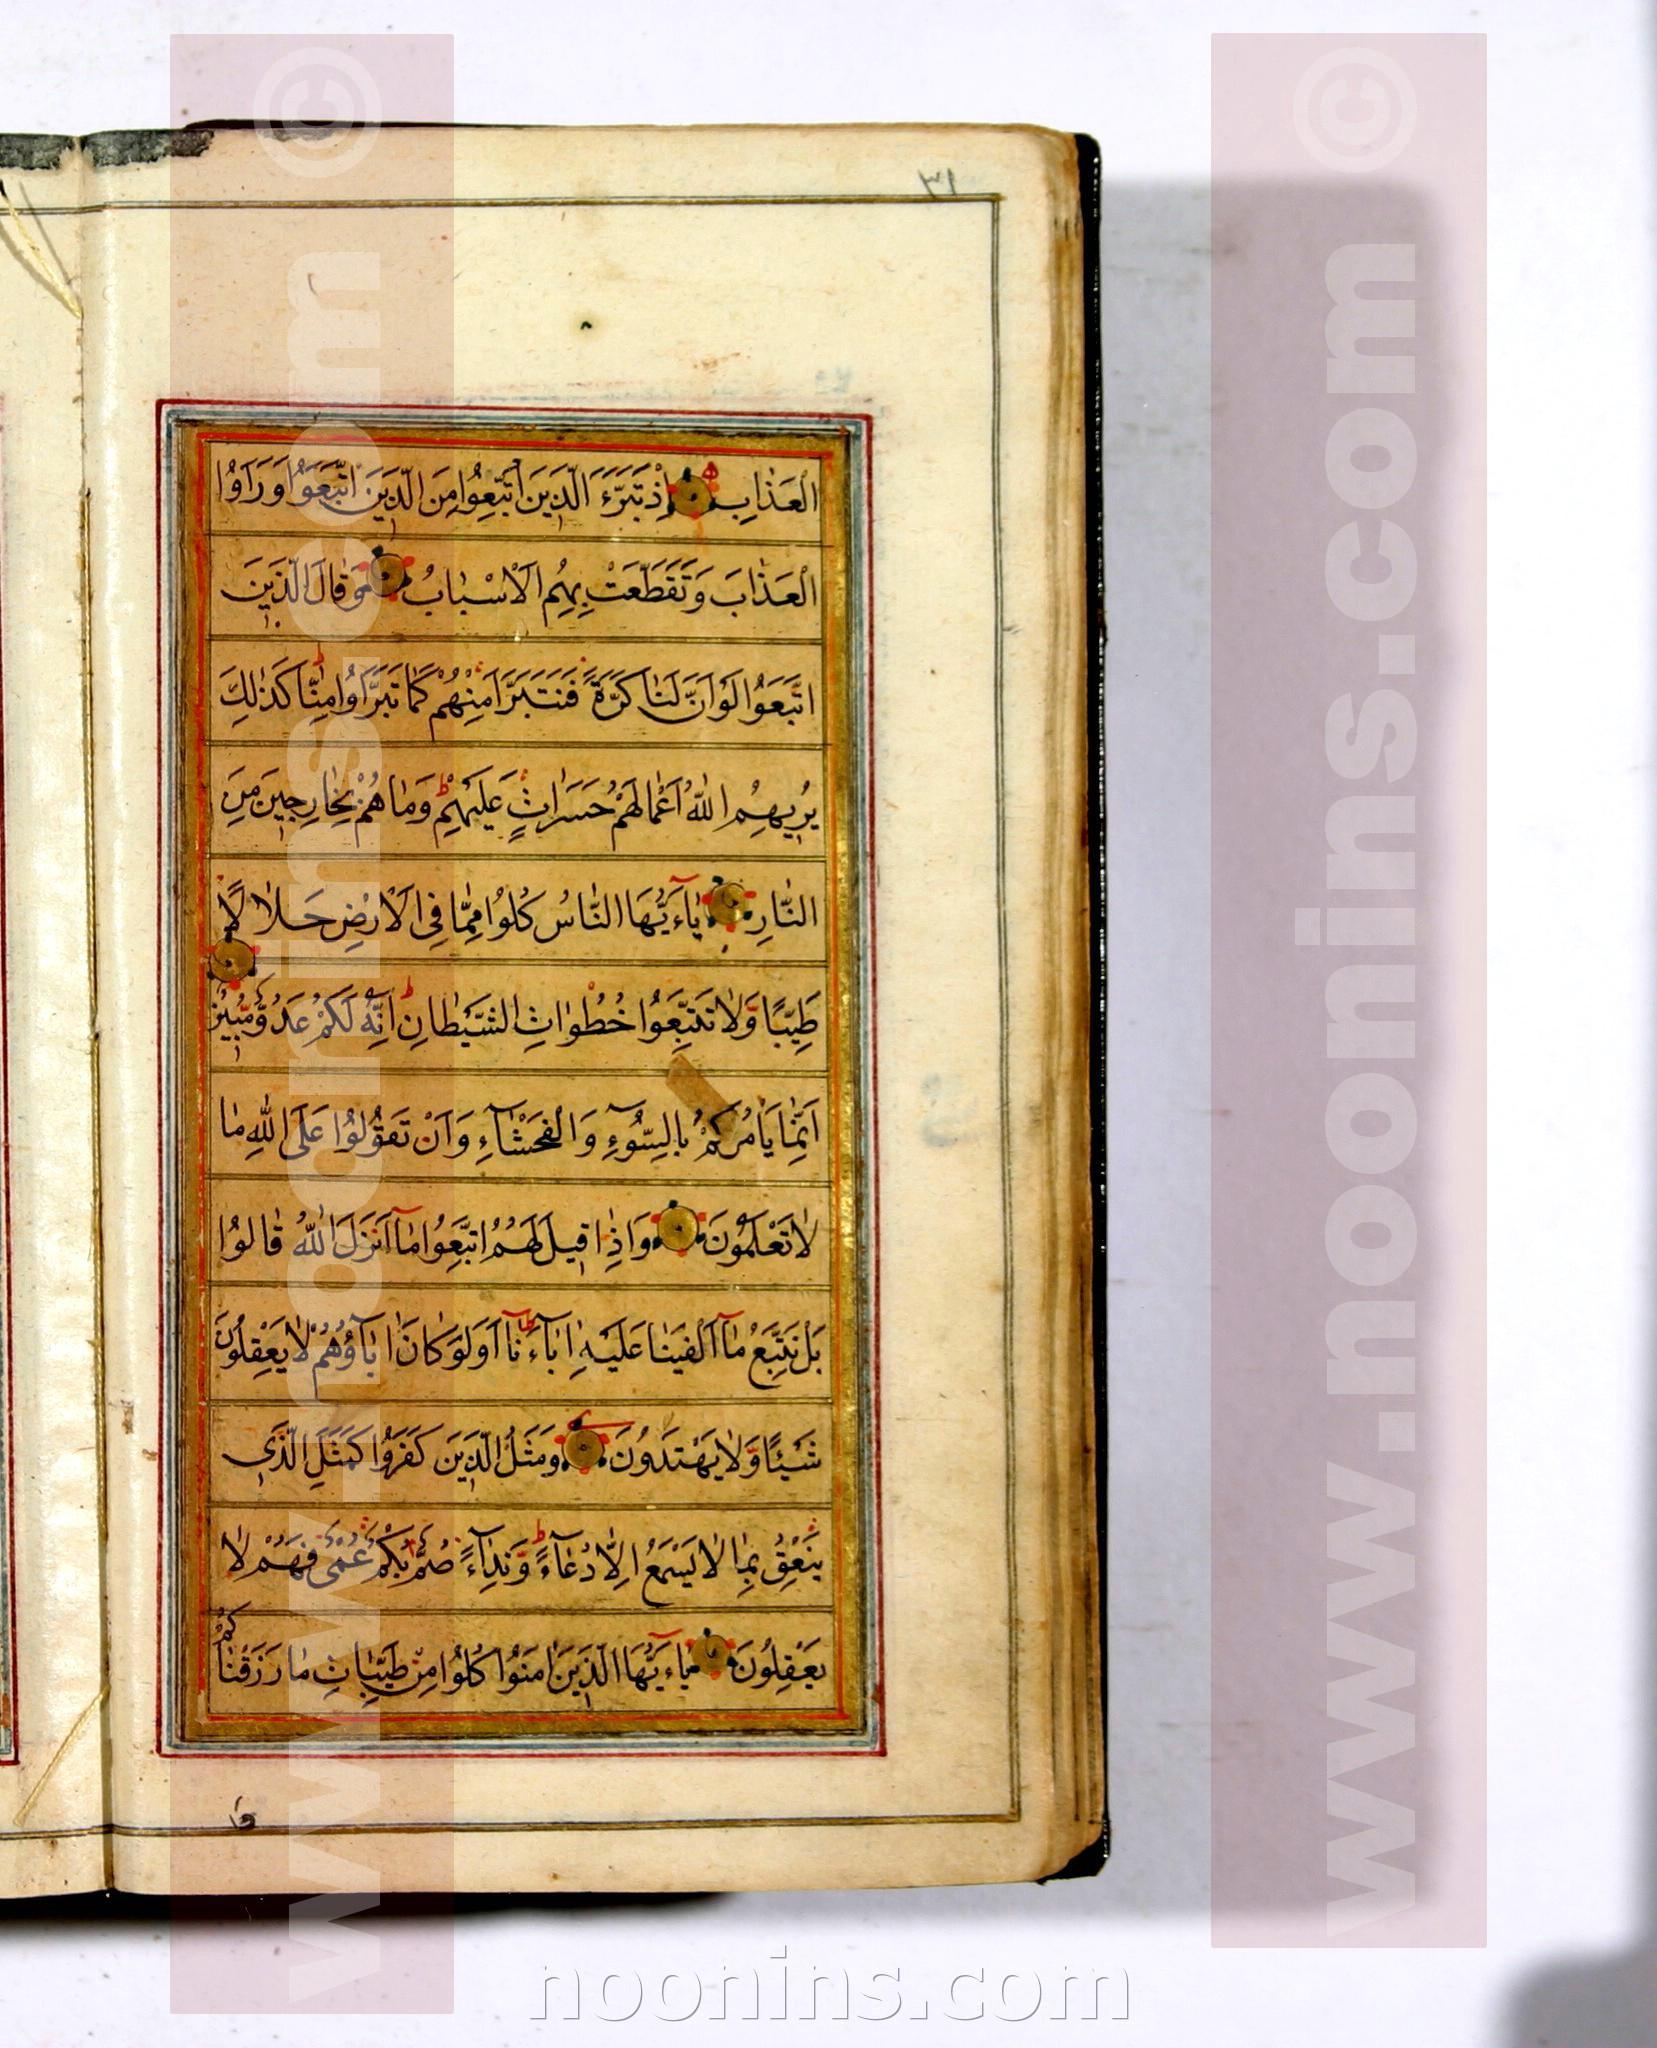 ١٣
الْعَذٰابِ اِذْ تَبَرَّءَ الَّذِينَ اتُّبِعُوا مِنَ الَّذِينَ اتَّبَعُوا وَرَاَوُا
الْعَذٰابَ وَتَقَطَّعَتْ بِهِمُ الْاَسْبٰابُ وَقٰالَ الَّذِينَ
اتَّبَعُوا لَوْ اَنَّ لَنٰا كَرَّةً فَنَتَبَرَّاَ مِنْهُمْ كَمٰا تَبَرَّاُوا مِنّٰا كَذٰلِكَ
يُرِيهِمُ اللّٰهُ اَعْمٰالَهُمْ حَسَرٰاتٍ عَلَيْهِمْ وَمٰا هُمْ بِخٰارِجِينَ مِنَ
النّٰارِ يٰاءَيُّهَا النّٰاسُ كُلُوا مِمّٰا فِي الْاَرْضِ حَلٰالًا
طَيِّبًا وَّلٰا تَتَّبِعُوا خُطُوٰاتِ الشَّيْطٰانِ اِنَّهُ لَكُمْ عَدُوٌّ مُّبِينٌ
اِنَّمٰا يَاْمُرُكُمْ بِالسُّوٓءِ وَالْفَحْشٰٓاءِ وَاَنْ تَقُولُوا عَلَى اللّٰهِ مٰا
لٰا تَعْلَمُونَ وَاِذٰا قِيلَ لَهُمُ اتَّبِعُوا مٰٓا اَنْزَلَ اللّٰهُ قٰالُوا
بَلْ نَتَّبِعُ مٰٓا اَلْفَيْنٰا عَلَيْهِ اٰبٰٓاءَنٰٓا اَوَلَوْ كٰانَ اٰبٰٓاؤُهُمْ لٰا يَعْقِلُونَ
شَيْئًا وَّلٰا يَهْتَدُونَ وَمَثَلُ الَّذِينَ كَفَرُوا كَمَثَلِ الَّذِي
يَنْعِقُ بِمٰا لٰا يَسْمَعُ اِلّٰا دُعٰٓاءً وَّنِدٰٓاءً صُمٌّ بُكْمٌ عُمْيٌ فَهُمْ لٰا
يَعْقِلُونَ يٰاءَيُّهَا الَّذِينَ اٰمَنُوا كُلُوا مِنْ طَيِّبٰاتِ مٰا رَزَقْنٰاكُمْ
www.noonins.com ©
www.noonins.com ©
noonins.com